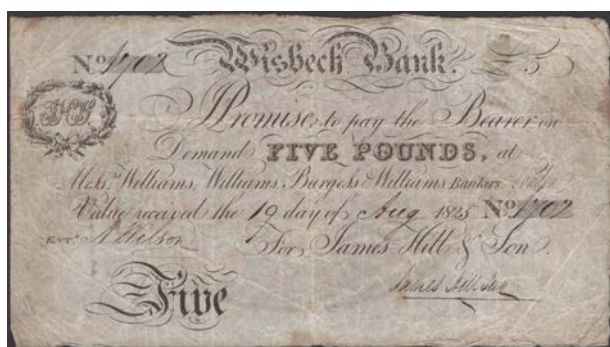 No. 1702 Wisbech Bank. £5
I Promise to pay the Bearer on
Demand FIVE POUNDS, at
Mess.rs Williams, Williams, Burgess & Williams Bankers
Value received the 19 day of Aug 1825 No. 1702
Ent.d N Wilson For James Hill & Son.
Five James Hill Jun